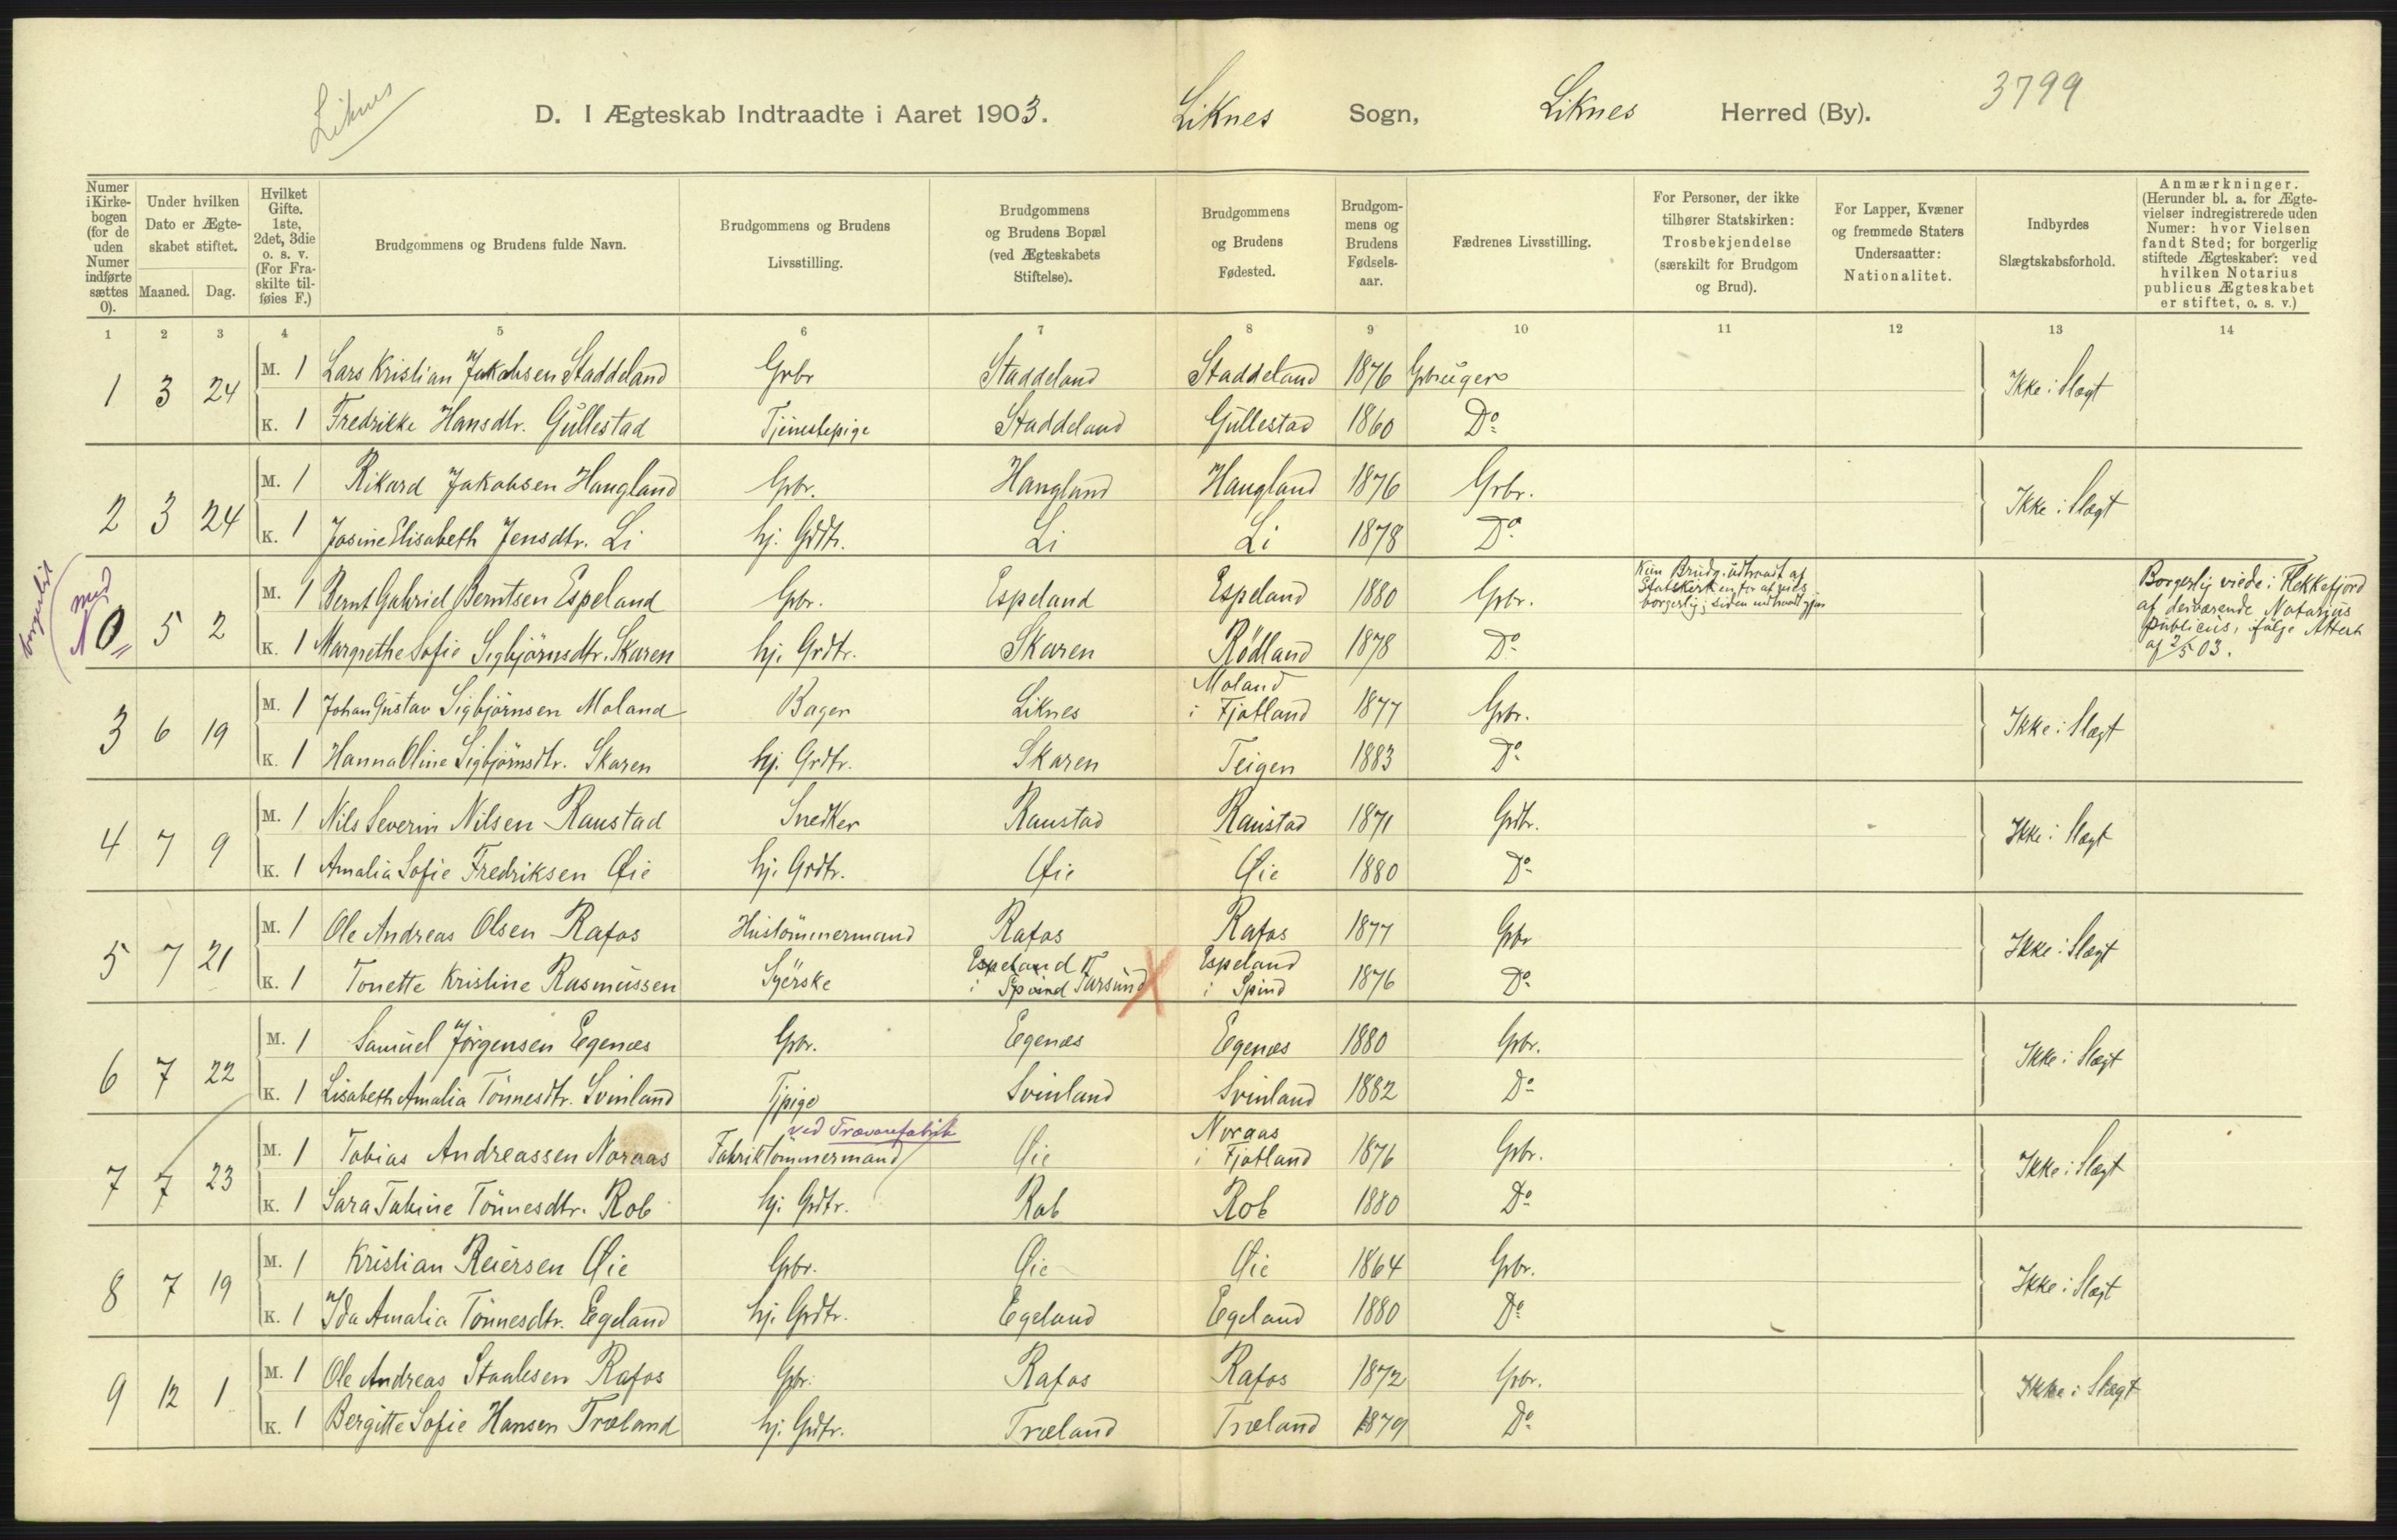 Liknes
D. I Ægteskab Indtraadte i Aaret 1903. Liknes Sogn, Liknes Herred (By). 3799
Numer i Kirkebogen (for de uden Numer indførte sættes 0). Under hvilken Dato er Ægteskabet stiftet. Maaned. Dag. Hvilket Gifte. 1ste, 2det, 3die o. s. v. (For Fraskilte tilføies F.) Brudgommens og Brudens fulde Navn. Brudgommens og Brudens Livsstilling. Brudgommens og Brudens Bopæl (ved Ægteskabets Stiftelse). Brudgommens og Brudens Fødested. Brudgommens og Brudens Fødselsaar. Fædrenes Livsstilling. For Personer, der ikke tilhører Statskirken: Trosbekjendelse (særskilt for Brudgom og Brud). For Lapper, Kvæner og fremmede Staters Undersaatter: Nationalitet. Indbyrdes Slægtskabsforhold. Anmærkninger. (Herunder bl. a. for Ægtevielser indregistrerede uden Numer: hvor Vielsen fandt Sted; for borgerlig stiftede Ægteskaber: ved hvilken Notarius publicus Ægteskabet er stiftet, o. s. v.)
1 2 3 4 5 6 7 8 9 10 11 12 13 14
1 3 24 M. 1 Lars Kristian Jakobsen Staddeland Grbr Staddeland Staddeland 1876 Gbruger Ikke i Slægt
K. 1 Fredrikke Hansdtr. Gullestad Tjenestepige Staddeland Gullestad 1860 Do
2 3 24 M. 1 Rikard Jakobsen Haugland Gbr. Haugland Haugland 1876 Grbr. Ikke i Slægt
K. 1 Josine Elisabeth Jensdtr. Li hj. Grdtr. Li Li 1878 Do
borgerlist med N 0 5 2 M. 1 Bernt Gabriel Berntsen Espeland Gbr. Espeland Espeland 1880 Gbr. Kun Brudg. udtraadt af Statskirken borgerlig; siden Borgerlig viede i Flekkefjord af derværende Notarius publicus, ifölge Attest af 2/5 03.
K. 1 Margrethe Sofie Sigbjörnsdtr. Skaren hj. Grdtr. Skaren Rödland 1878 Do
3 6 19 M. 1 Johan Gustav Sigbjörnsen Moland Bager Liknes Moland i Fjotland 1877 Gbr. Ikke i Slægt
K. 1 Hanna Oline Sigbjörnsdtr. Skaren hj. Grdtr. Skaren Teigen 1883 Do
4 7 9 M. 1 Nils Severin Nilsen Raustad Snedker Raustad Raustad 1871 Grdbr. Ikke i Slægt
K. 1 Amalia Sofie Fredriksen Øie hj. Grdtr. Øie Øie 1880 Do
5 7 21 M. 1 Ole Andreas Olsen Rafos Hustömmermand Rafos Rafos 1877 Gbr Ikke i Slægt
K. 1 Tonette Kristine Rasmussen Syerske Espeland i Spind Farsund Espeland i Spind 1876 Do
6 7 22 M. 1 Samuel Jörgensen Egenæs Gbr. Egenæs Egenæs 1880 Gbr. Ikke i Slægt
K. 1 Lisabeth Amalia Tönnesdtr. Svinland Tjpige Svinland Svinland 1882 Do
7 7 23 M. 1 Tobias Andreassen Noraas Fabriktömmermand ved Trævarefabrik Øie Noraas i Fjotland 1876 Gbr. Ikke i Slægt
K. 1 Sara Tabine Tönnesdtr. Rob hj. Grdtr. Rob Rob 1880 Do
8 7 19 M. 1 Kristian Reiersen Øie Gbr. Øie Øie 1864 Gbr. Ikke i Slægt
K. 1 Ida Amalia Tönnesdtr. Egeland hj. Grdtr. Egeland Egeland 1880 Do
9 12 1 M. 1 Ole Andreas Staalesen Rafos Gbr. Rafos Rafos 1872 Gbr. Ikke i Slægt
K. 1 Bergitte Sofie Hansen Træland hj. Grdtr. Træland Træland 1879 Do